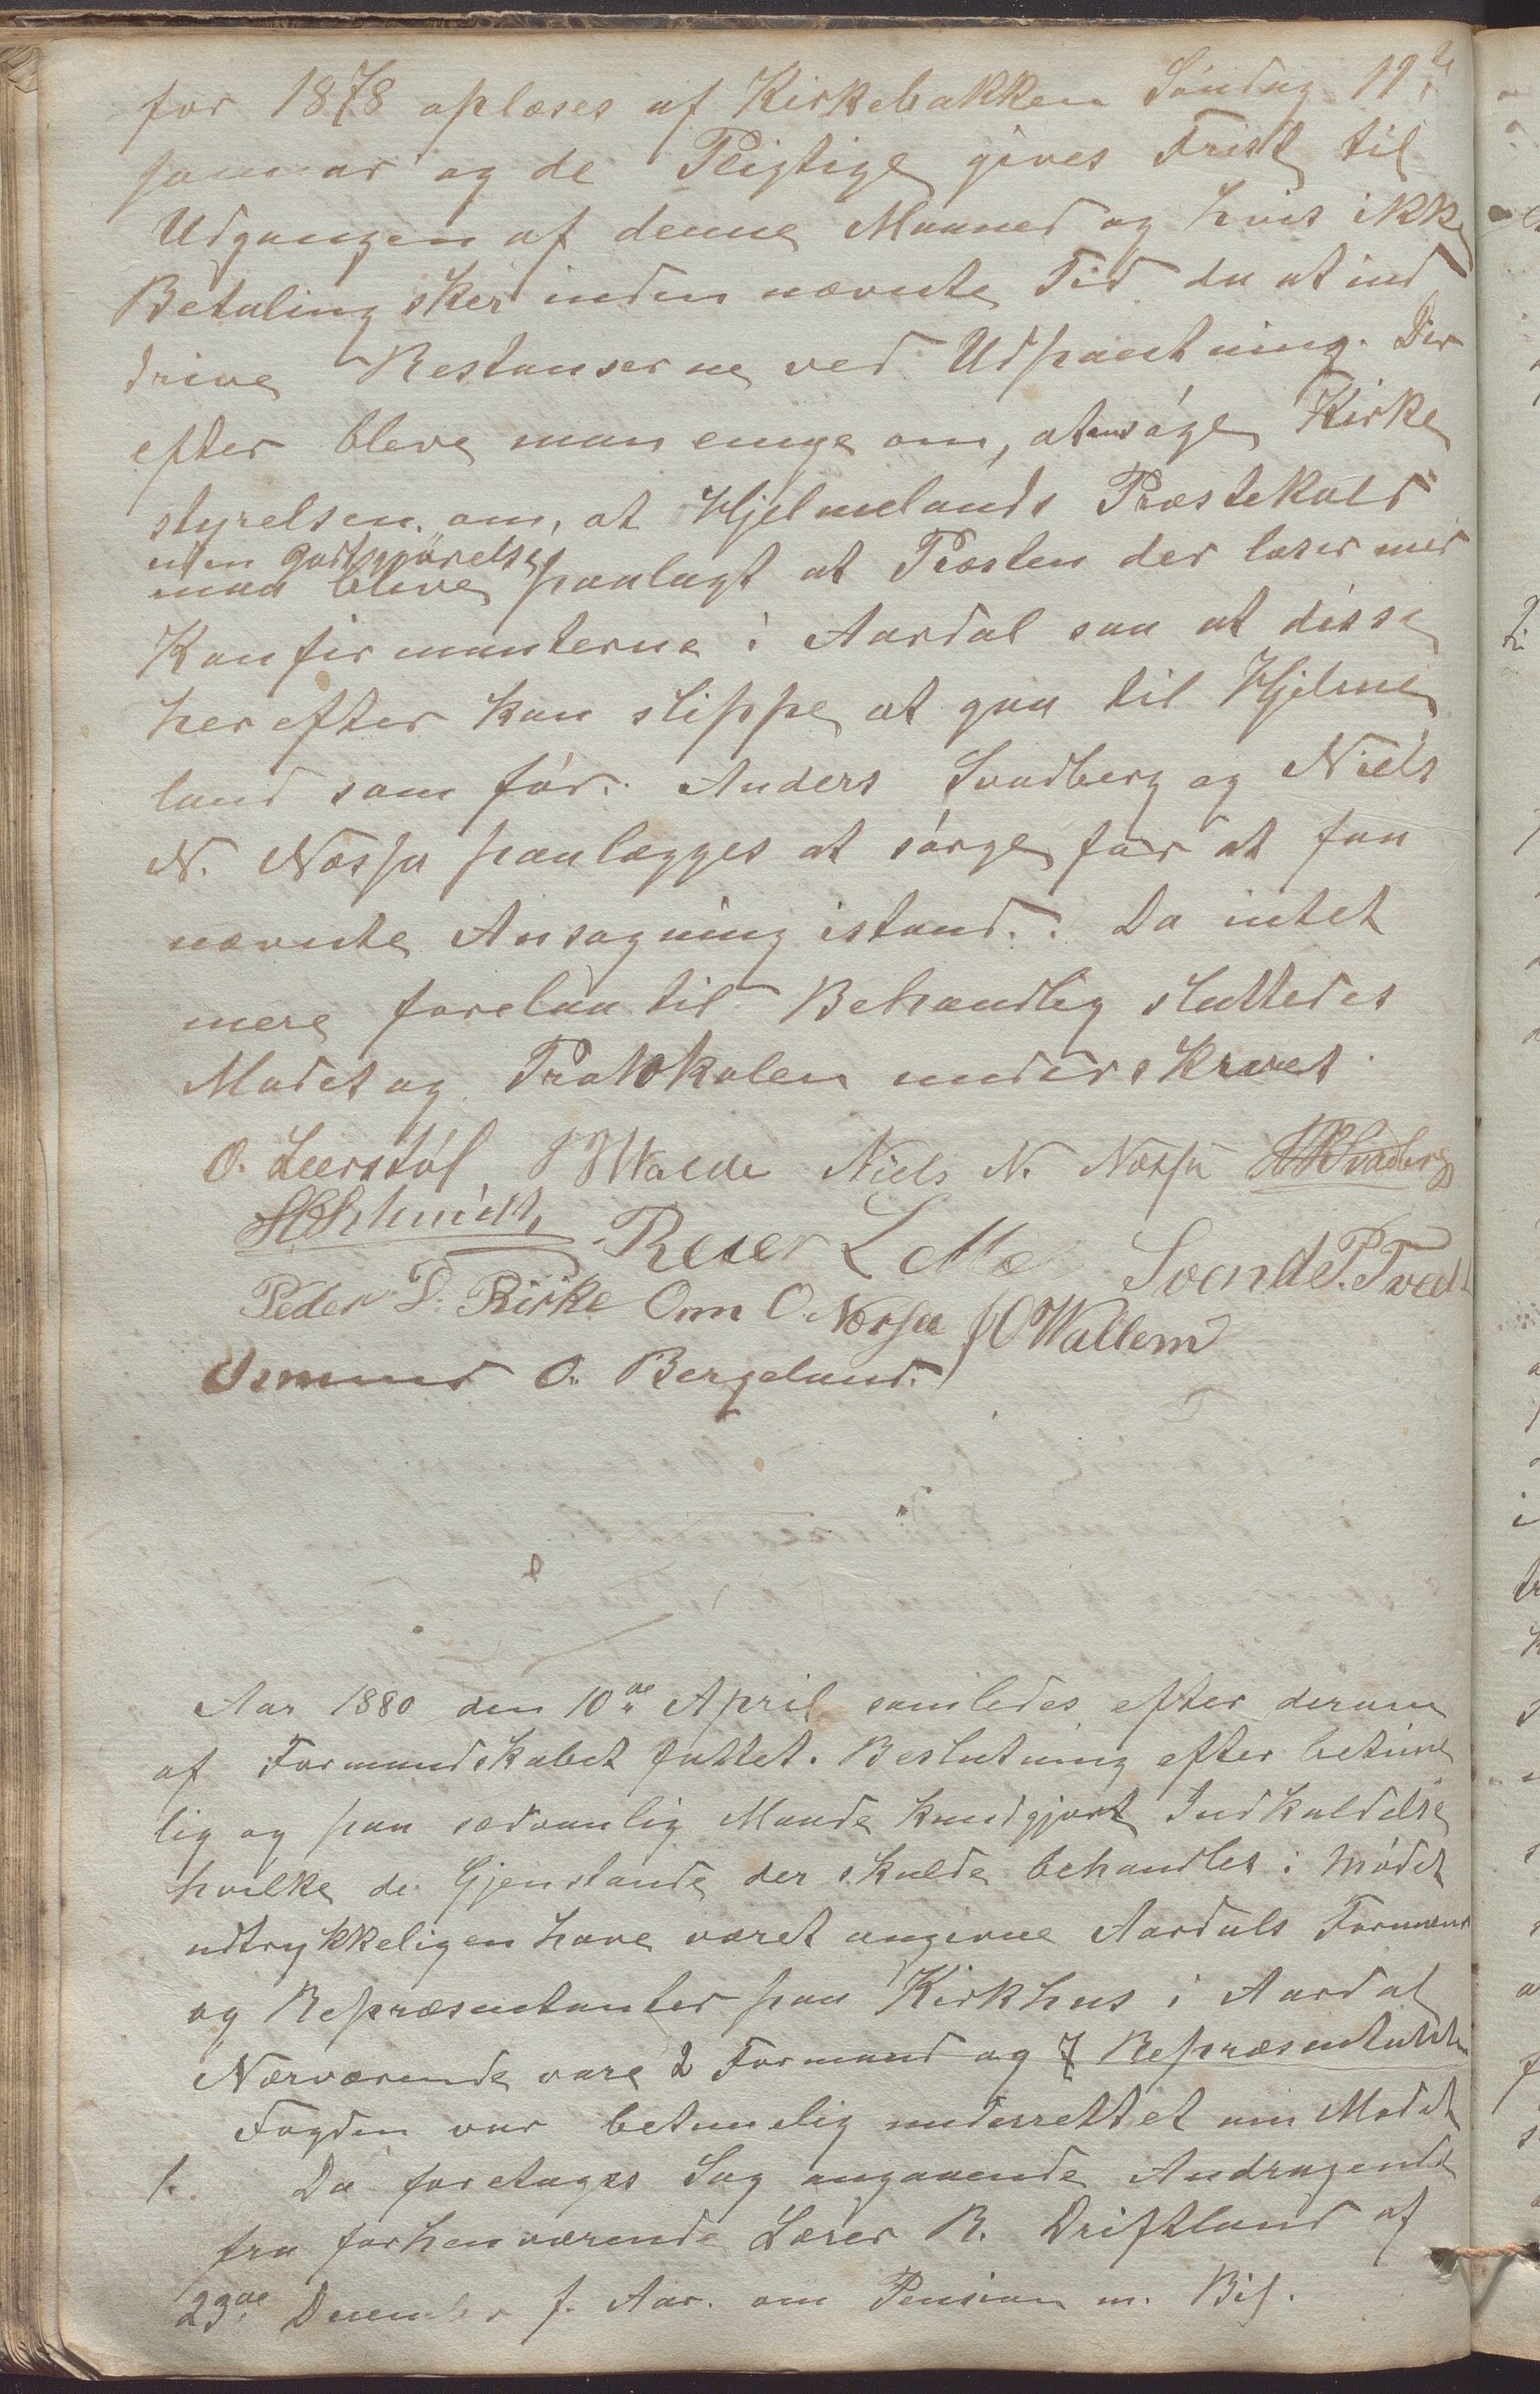 for 1878 oplæses af Kirkebakken Søndag 11te
januar og de Pligtige gives Frist til
Udgangen af denne Maaned og hvis ikke
Betaling sker inden nævnte Tid da at ind
drive Restanserne ved Udpantning. Der
efter bleve man enige om, at ansøge Kirke
styrelsen om, at Hjelmelands Præstekald
uden godtgjörelse
maa blive paalagt at Præsten der læser med
Konfirmanterne i Aardal saa at disse
herefter kan slippe at gaa til Hjelme
land som før. Anders Svadberg og Niels
N. Næssa paalægges at sørge for at faa
nævnte Ansøgning istand. Da intet
mere forelaa til Behandlig sluttedes
Mødet og Protokolen underskrevet
O. Leerstøl Walde Niels N. Næssa Svadberg
Schmidt Reier L Mæ Svend P. Tvedt
Peder P. Kirke Omn O. Næssa J O Wallem
Osmund O. Bergeland.
Aar 1880 den 10de April samledes efter derom
af Formandskabet fattet Beslutning efter betime
lig og paa sædvanlig Maade kundgjort Indkaldelse
hvilke de Gjenstande der skulde behandles i Mødet
udtrykkeligen have været angivne Aardals Formænd
og Repræsentanter paa Kirkhus i Aardal
Nærværende vare 2 Formænd og 7 Repræsentanter
Fogden var betimelig underrettet om Mødet
1. Da foretages Sag angaaende Andragende
fra forhenværende Lærer R. Driftland af
23de December f. Aar. om Pension m. Bil.